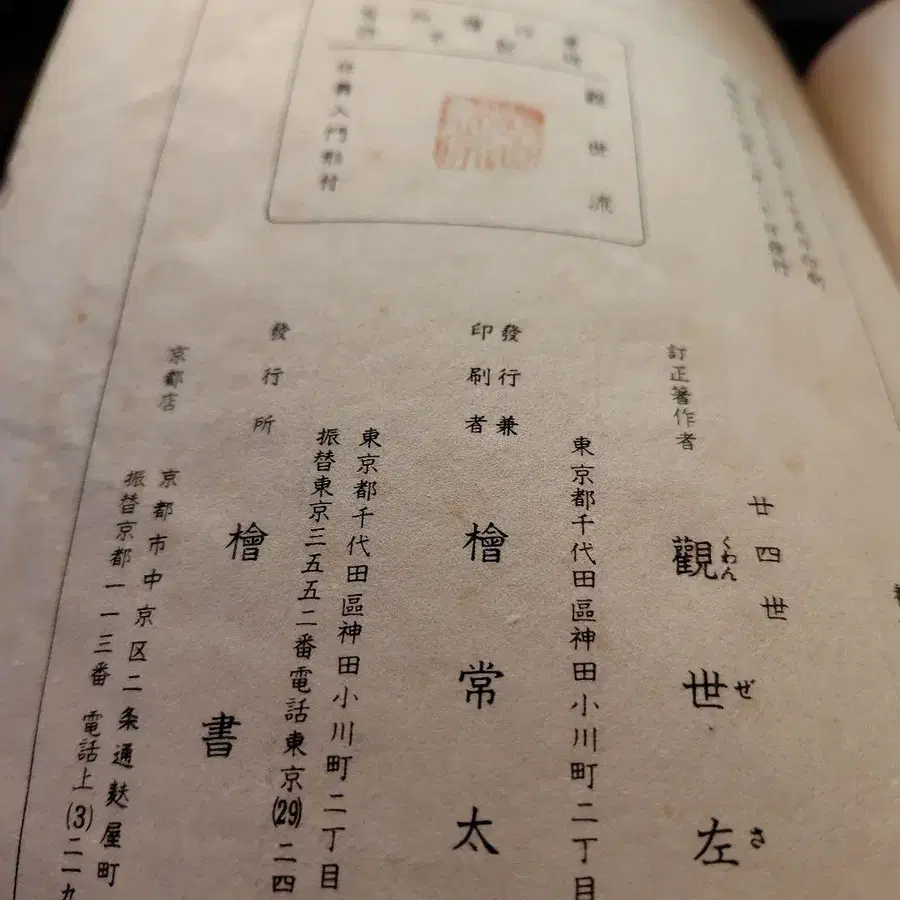 觀世流
訂正著作者
廿四世
觀世左
くわんぜさ
東京都千代田區神田小川町二丁目
發行兼
印刷者
檜常太
東京都千代田區神田小川町二丁目
振替東京三五五二番電話東京(29)二四
發行所
檜書
京都店
京都市中京区二条通麸屋町
振替京都一一三番 電話上(3)二一九